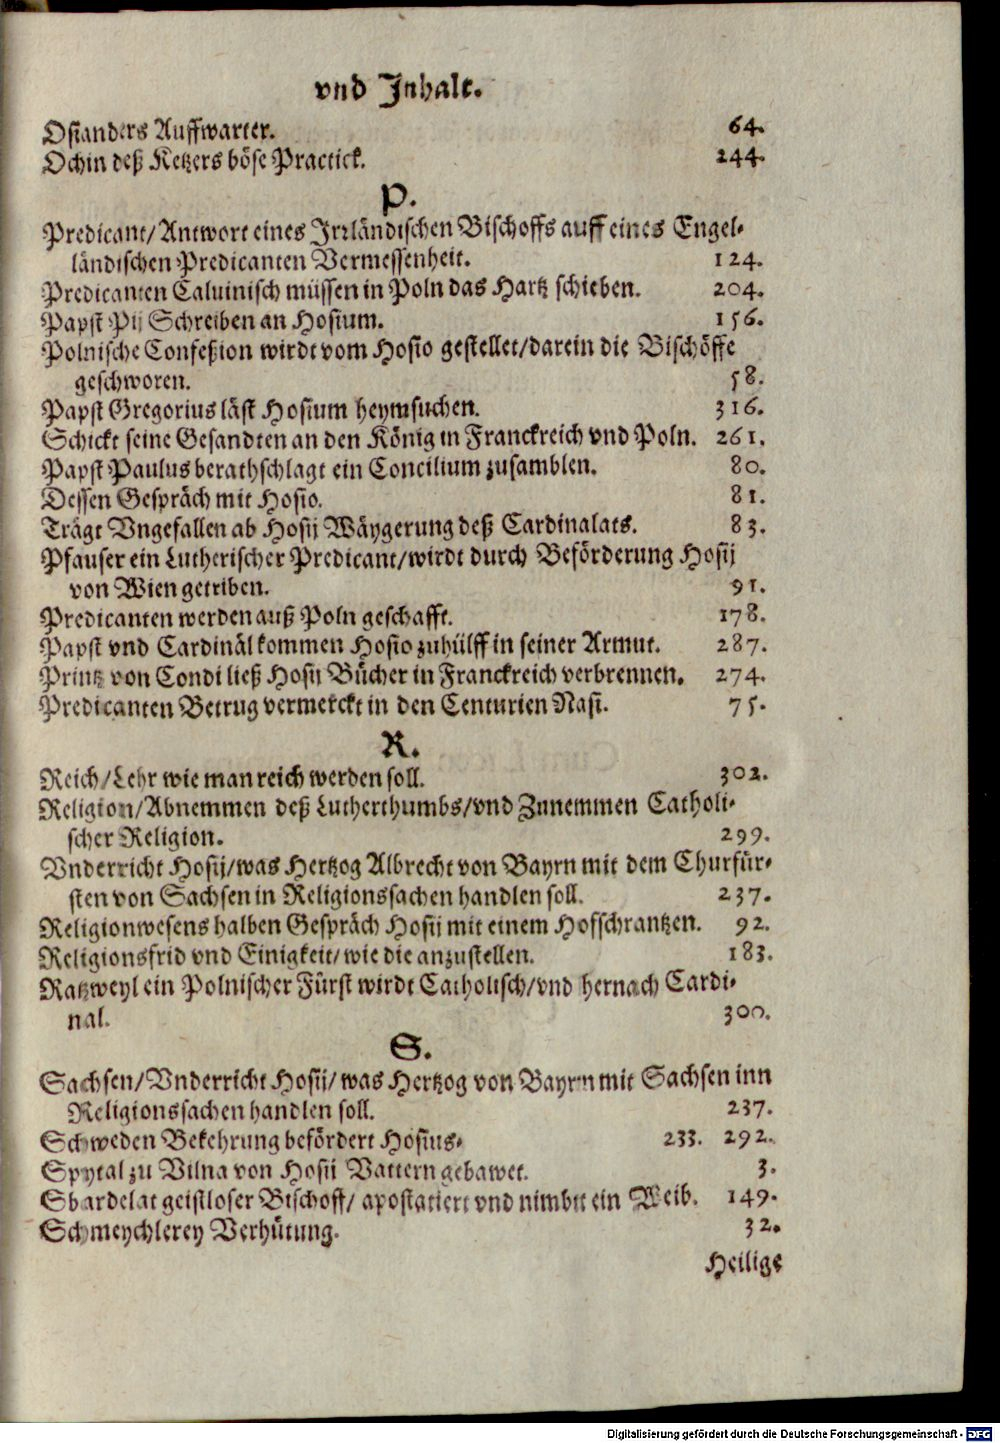 vnd Jnhalt.
Osianders Auffwarter. 64.
Ochin deß Ketzers böse Practick. 244.
P.
Predicant/Antwort eines Jrꝛländischen Bischoffs auff eines Engel-
ländischen Predicanten Vermessenheit. 124.
Predicanten Caluinisch müssen in Poln das Hartz schieben. 204.
Papst Pij Schreiben an Hosium. 156.
Polnische Confeßion wirdt vom Hosio gestellet/darein die Bischöffe
geschworen. 58.
Papst Gregorius läst Hosium heymsuchen. 316.
Schickt seine Gesandten an den König in Franckreich vnd Poln. 261.
Papst Paulus berathschlagt ein Concilium zusamblen. 80.
Dessen Gespräch mit Hosio. 81.
Trägt Vngefallen ab Hosij Wäygerung deß Cardinalats. 83.
Pfauser ein Lutherischer Predicant/wirdt durch Beförderung Hosij
von Wien getriben. 91.
Predicanten werden auß Poln geschafft. 178.
Papst vnd Cardinäl kommen Hosio zuhülff in seiner Armut. 287.
Printz von Condi ließ Hosij Bücher in Franckreich verbrennen. 274.
Predicanten Betrug vermerckt in den Centurien Nasi. 75.
R.
Reich/Lehr wie man reich werden soll. 302.
Religion/Abnemmen deß Lutherthumbs/vnd Zunemmen Catholi-
scher Religion. 299.
Vnderricht Hosij/was Hertzog Albrecht von Bayrn mit dem Churfür-
sten von Sachsen in Religionssachen handlen soll. 237.
Religionwesens halben Gespräch Hosij mit einem Hofschrantzen. 92.
Religionsfrid vnd Einigkeit/wie die anzustellen. 183.
Ratzweyl ein Polnischer Fürst wirdt Catholisch/vnd hernach Cardi-
nal. 300.
S.
Sachsen/Vnderricht Hosij/was Hertzog von Bayrn mit Sachsen inn
Religionssachen handlen soll. 237.
Schweden Bekehrung befördert Hosius. 233. 292.
Spytal zu Vilna von Hosij Vattern gebawet. 3.
Sbardelat geistloser Bischoff/ apostatiert vnd nimbt ein Weib. 149.
Schmeychlerey Verhütung. 32.
Heilige
Digitalisierung gefördert durch die Deutsche Forschungsgemeinschaft - DFG